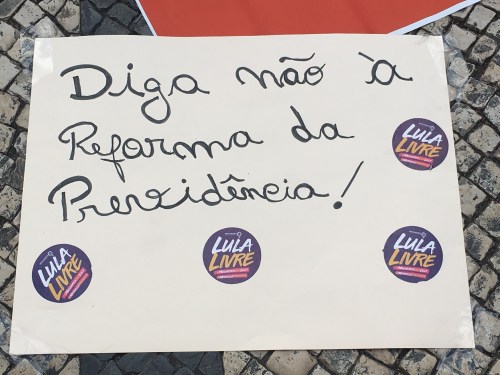 Diga não à
Reforma da
Previdência!
LULA
LIVRE
LULA
LIVRE
LULA
LIVRE
LULA
LIVRE